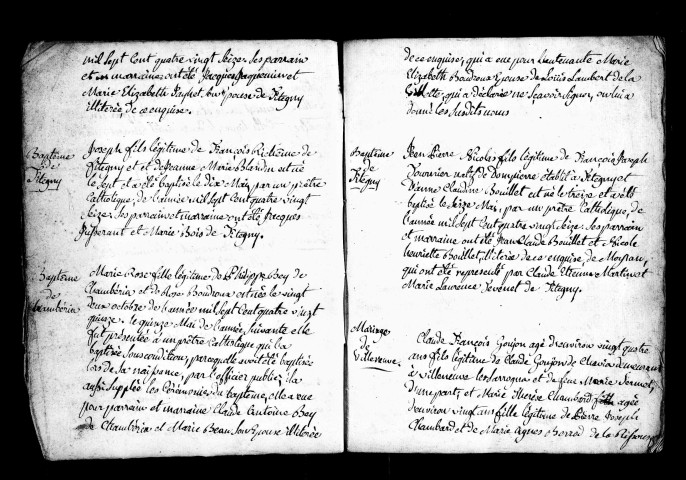 mil Sept Cent quatre vingt Seize. Ses parrain
et marraine ont été Jacques Jacquemin et
Marie Elizabeth épouse de Fétigny
illiterée, de ce enquise.
Baptême
de
Fétigny
Joseph fils légitime de François Richême de
Fétigny et de Jeanne Marie Blandin est né
le Sept et a été baptisé le dix Mai, par un prêtre
Catholique, de l'année mil Sept Cent quatre vingt
Seize. Ses parrain et marraine ont été Jacques
et Marie Bois de Fétigny.
Baptême
de
Chambéria
Marie Rose fille légitime de Philippe Bey de
Chambéria et de Rose Boudroux est née le vingt
deux octobre de l'année mil Sept Cent quatre vingt
quinze. le quinze Mai de l'année Suivante elle
fut présentée à un prêtre Catholique qui l'a
baptisée Sous condition, parce qu'elle avoit été baptisée
lors de Sa naissance, par l'officier public; il a
aussi Suppléé les Cérémonies du baptême, elle a eue
pour parrain et marraine Claude Antoine Bey
de Chambéria et Marie Beau Son Epouse illiterée
de ce enquise, qui a eue pour Lieutenante Marie
Elizabeth Boudroux Epouse de Louis Lambert de la
qui a déclarée ne Scavoir Signer, on lui a
donné les Susdits noms
Baptême
de
Fétigny
Jean Pierre Nicolas fils légitime de François Joseph
natif de Dompierre établi à Fétigny et
Pierrette Claudine Bouillet est né le treize et a été
baptisé le Seize Mai, par un prêtre Catholique, de
l'année mil Sept Cent quatre vingt Seize. Ses parrain
et marraine ont été Jean Claude Bouillet et Nicole
henriette Bouillet, illiterée de ce enquise, de
qui ont été représenté par Claude Etienne Martin et
Marie Laurence de Fétigny.
Mariage
de
Villeneuve.
Claude François Goujon agé d'environ vingt quatre
ans fils légitime de Claude Goujon de
à Villeneuve les et de feue Marie
d'une part; et Marie Therèse Chambard agée
d'environ vingt ans fille légitime de Pierre Joseph
Chambard et de Marie Agnes de la